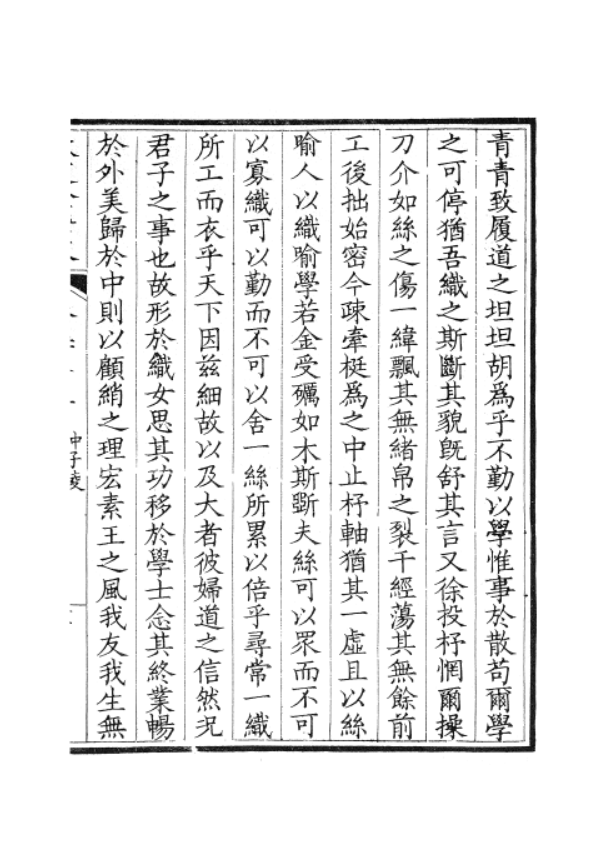 青青致履道之坦坦胡爲乎不勤以學惟事於散苟爾學
之可停猶吾織之斯斷其貌既舒其言又徐投杼惘爾操
刀介如絲之傷一緯飄其無緒帛之裂千經蕩其無餘前
工後拙始密今疎牽梃爲之中止杼軸猶其一虛且以絲
喻人以織喻學若金受礪如木斯斵夫絲可以眾而不可
以寡織可以勤而不可以舍一絲所累以倍乎尋常一織
所工而衣乎天下因茲細故以及大者彼婦道之信然況
君子之事也故形於織女思其功移於學士念其終業暢
於外美歸於中則以顧綃之理宏素王之風我友我生無
仲子陵